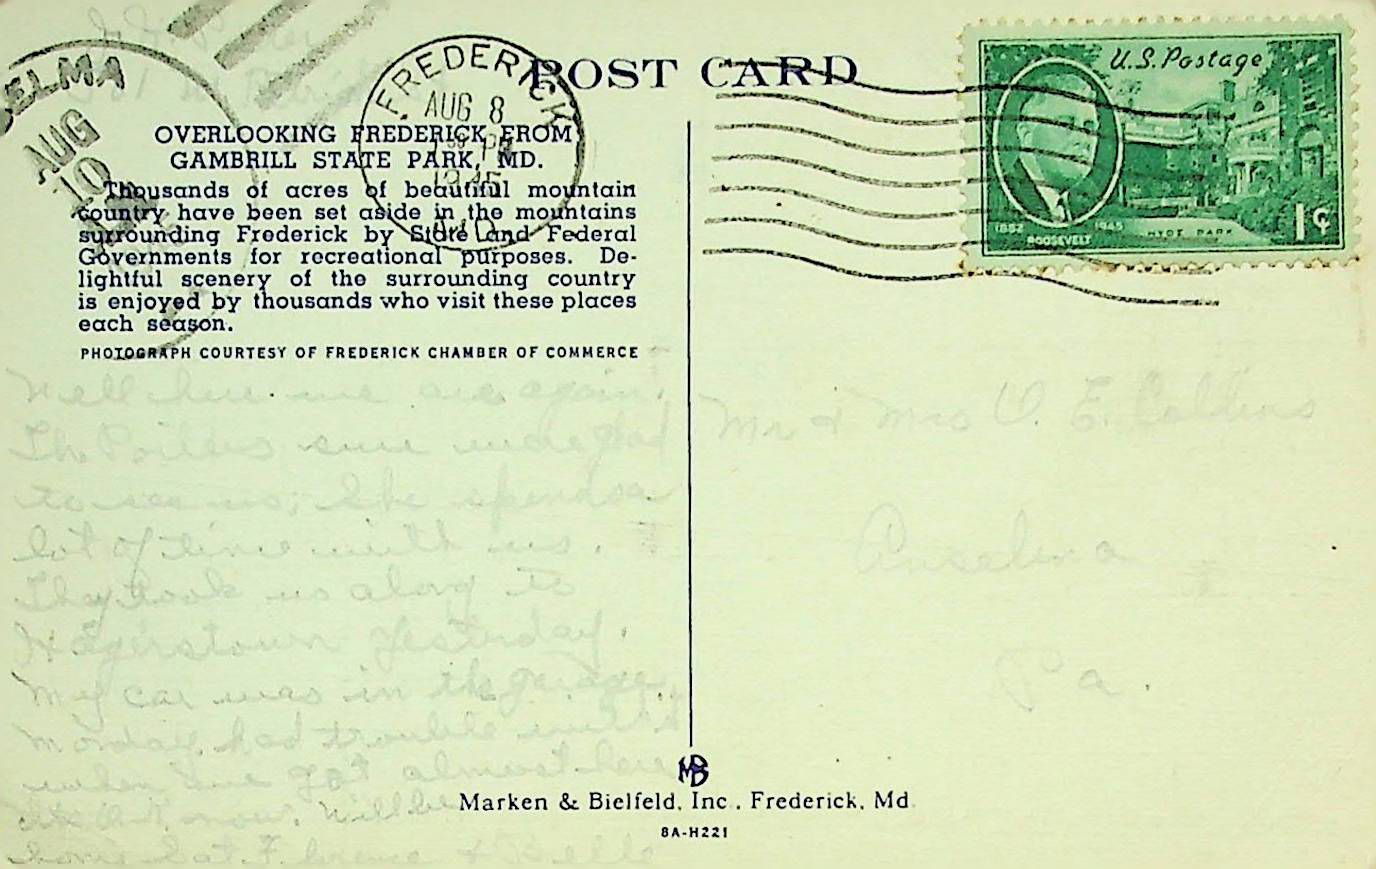 SELMA
AUG
10
FREDERICK
AUG 8
1945
MD.
POST CARD
U.S. Postage
1882 ROOSEVELT 1945
HYDE PARK
1¢
OVERLOOKING FREDERICK FROM
GAMBRILL STATE PARK, MD.
Thousands of acres of beautiful mountain
country have been set aside in the mountains
surrounding Frederick by State and Federal
Governments for recreational purposes. De-
lightful scenery of the surrounding country
is enjoyed by thousands who visit these places
each season.
PHOTOGRAPH COURTESY OF FREDERICK CHAMBER OF COMMERCE
Well here we are again.
The sure were glad
to see us; she spends a
lot of time with us.
They took us along to
Hagerstown yesterday.
My car was in the garage
Monday, had trouble with it
when we got almost here
O.K. now. Will be
home Sat. & Belle
Mr & Mrs O. E.
Anselma
Pa.
MB
Marken & Bielfeld, Inc., Frederick, Md.
8A-H221